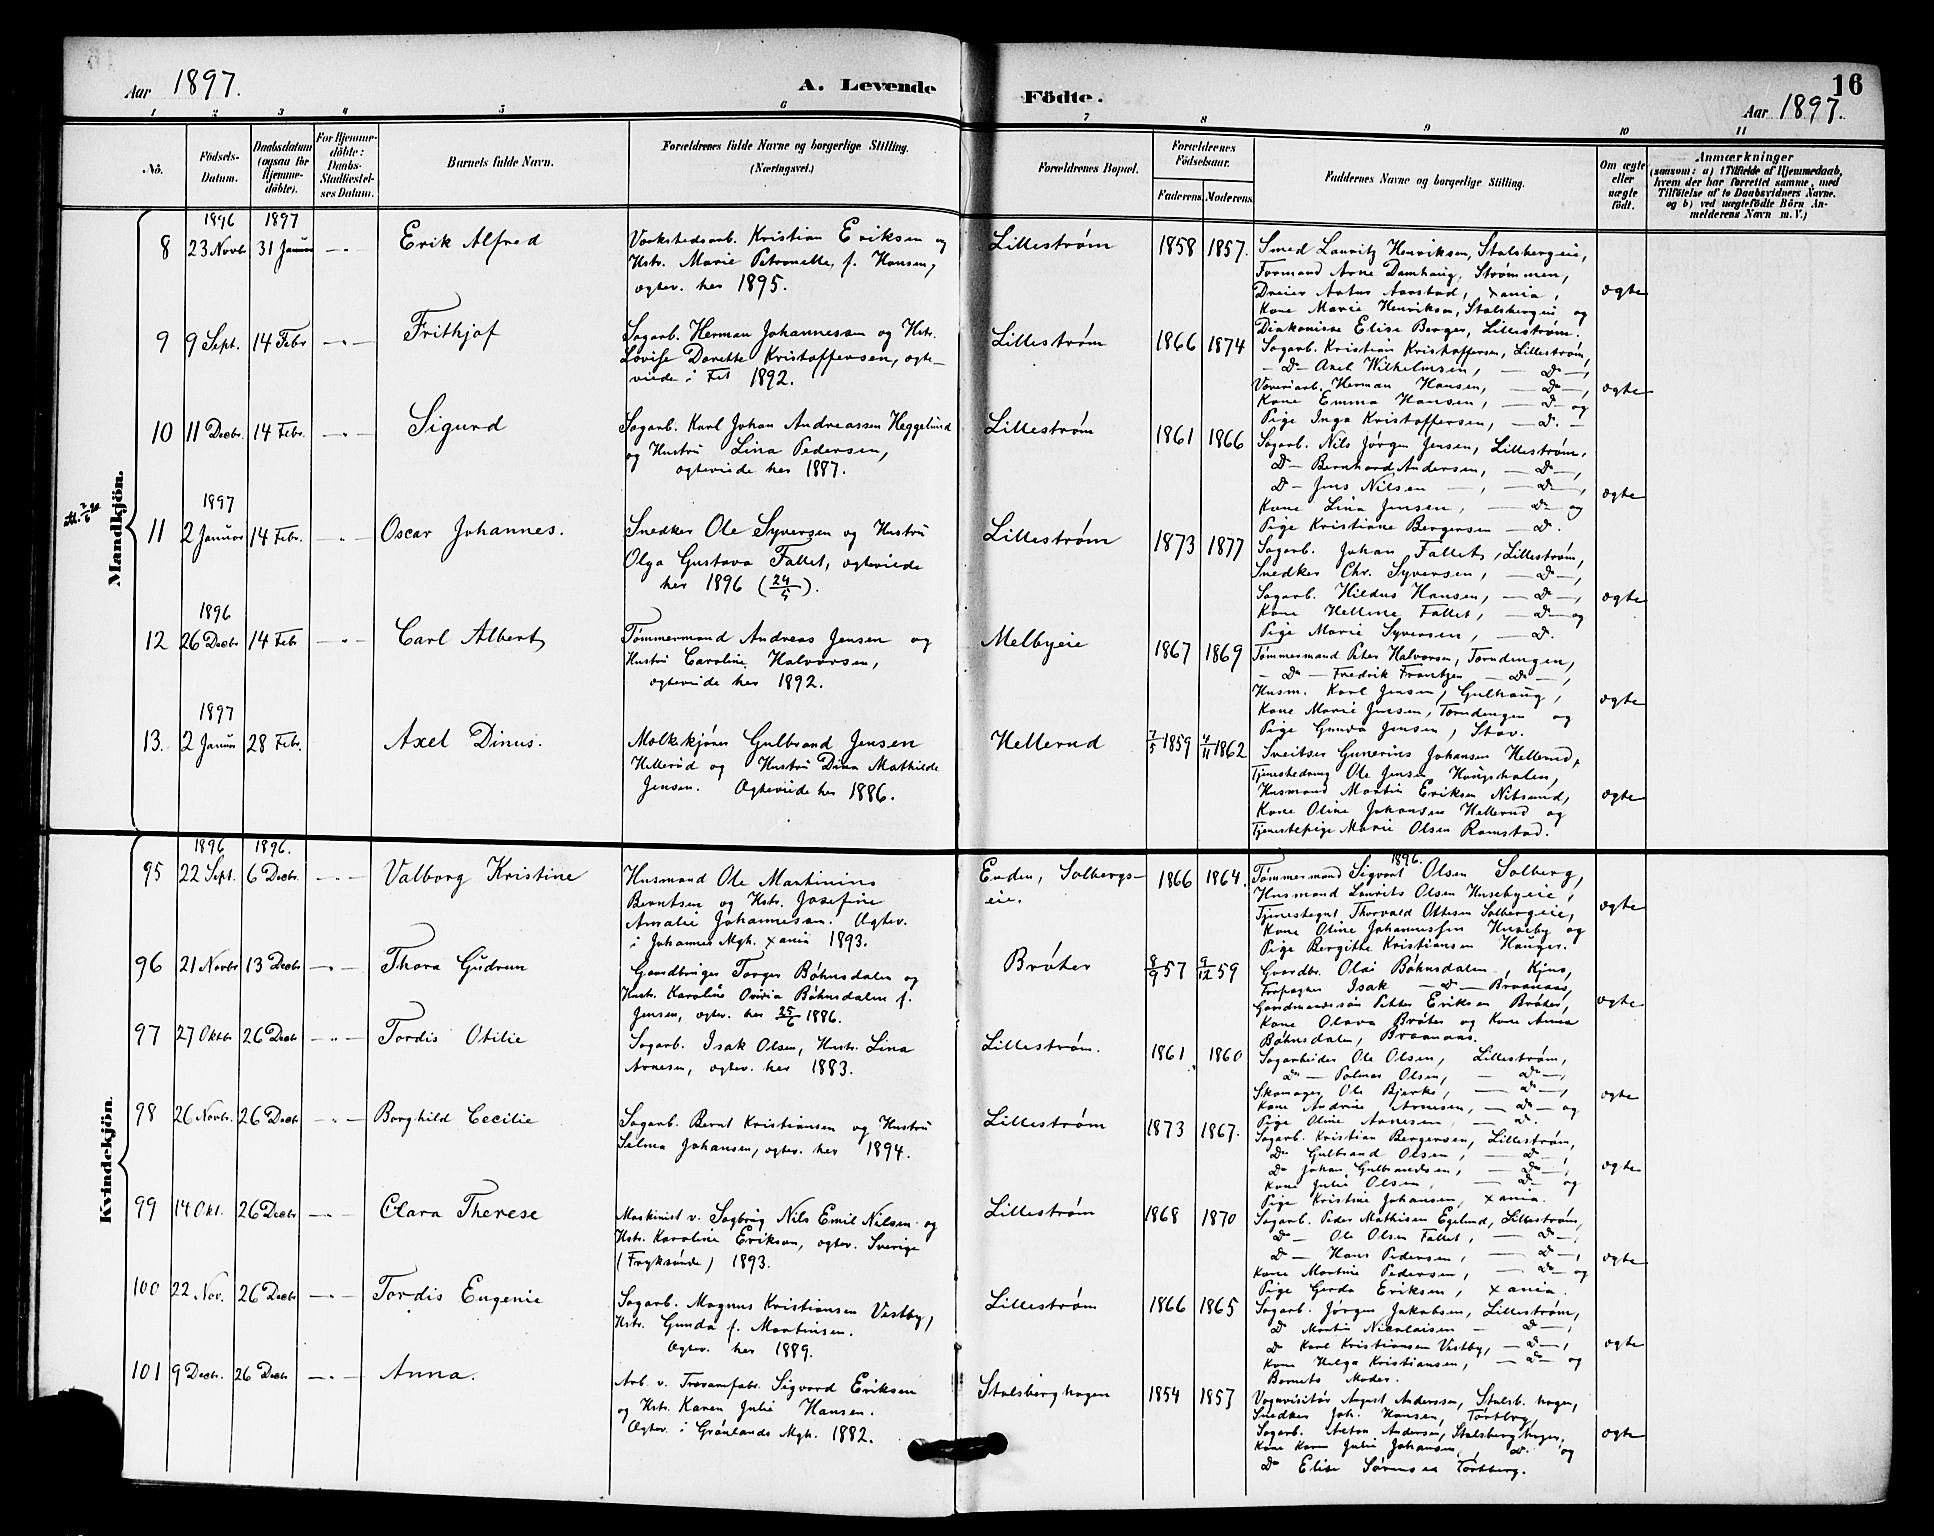 Aar 1897.
A. Levende Födte.
16
Aar 1897.
1 2 3 4 5 6 7 8 9 10 11
No.
Födsels-Datum.
Daabsdatum (ogsaa for Hjemmedöbte).
For Hjemmedöbte: Daabs-Stadfæstelses Datum.
Barnets fulde Navn.
Forældrenes fulde Navne og borgerlige Stilling. (Næringsvei.)
Forældrenes Bopæl.
Forældrenes Födselsaar.
Faderens. Moderens.
Faddernes Navne og borgerlige Stilling.
Om ægte eller uægte födt.
Anmærkninger
(saasom: a) i Tilfælde af Hjemmedaab,
hvem der har forrettet samme, med
Tilföielse af to Daabsvidners Navne,
og b) ved uægtefödte Börn An-
melderens Navn m. V.)
Mandkjön.
1896 1897
8 23 Novbr 31 Januar —„— Erik Alfred
Verkstedsarb. Kristian Eriksen og
Hstr. Marie Petronelle, f. Hansen,
ægtev. her 1895.
Lillestrøm 1858 1857.
Smed Lauritz Henriksen, Stalsbergeie,
Formand Arne Damhaug, Strømmen,
Dreier Anton Aarstad, Xania,
Kone Marie Henriksen, Stalsbergeie og
Diakonisse Elise Berger, Lillestrøm.
ægte
9 9 Sept. 14 Febr —„— Frithjof
Sagarb. Herman Johannessen og Hstr.
Lovise Dorette Kristoffersen, ægte-
viede i Fet 1892.
Lillestrøm 1866 1874
Sagarb. Kristian Kristoffersen, Lillestrøm,
— Do — Axel Wilhelmsen, — Do —,
Høveriarb. Herman Hansen, — Do —,
Kone Emma Hansen, — Do — og
Pige Inga Kristoffersen, — Do. —
ægte
10 11 Decbr. 14 Febr. —„— Sigurd
Sagarb. Karl Johan Andreassen Heggelund
og Hustru Lina Pedersen,
ægteviede her 1887.
Lillestrøm 1861 1866
Sagarb. Nils Jørgen Jensen, Lillestrøm,
Do — Bernhard Andersen, — Do —,
Do — Jens Nilsen —, — Do —,
Kone Lina Jensen, — Do — og
Pige Kristiane Bergersen — Do.
ægte
1897
11 2 Januar 14 Febr. —„— Oscar Johannes.
Snedker Ole Syversen og Hustru
Olga Gustava Fallet, ægteviede
her 1896 (24/5).
Lillestrøm 1873 1877
Sagarb. Johan Fallet, Lillestrøm,
Snedker Chr. Syversen, — Do —,
Sagarb. Hildus Hansen, — Do —,
Kone Helline Fallet, — Do — og
Pige Marie Syversen, — Do.
ægte
1896
12 26 Decbr 14 Febr —„— Carl Albert
Tømmermand Andreas Jensen og
Hustru Caroline Halvorsen,
ægteviede her 1892.
Melbyeie 1867 1869
Tømmermand Peter Halvorsen, Torndengen,
— Do — Fredrik Frantzen — Do —,
Husm. Karl Jensen, Gulhaug,
Kone Marie Jensen, Torndengen og
Pige Gunda Jensen, Stav.
ægte
1897
13. 2 Januar 28 Febr. Axel Dinus.
Melkekjører Gulbrand Jensen
Hellerud og Hustru Dina Mathilde
Jensen. Ægteviede her 1886.
Hellerud 7/5 1859 4/11 1862
Sveitser Gunerius Johansen Hellerud,
Tjenestedreng Ole Jensen
Husmand Martin Eriksen Nitsund,
Kone Oline Johansen Hellerud og
Tjenestepige Marie Olsen Ramstad.
ægte
Kvindekjön.
1896 1896.
95 22 Sept. 6 Decbr —„— Valborg Kristine
Husmand Ole Martinius
Berntsen og Hstr. Josefine
Amalie Johannesen. Ægtev.
i Johannes Mgh. Xania 1893.
Enden, Solbergs-
eie.
1866 1864.
1896.
Tømmermand Sigvart Olsen Solberg,
Husmand Laurits Olsen Husebyeie,
Tjenestegut Thorvald Ottesen Solbergeie,
Kone Oline Johannessen Huseby og
Pige Bergitte Kristiansen Hauger.
ægte
96 21 Novbr 13 Decbr —„— Thora Gudrun
Gaardbruger Torger Bøhnsdalen og
Hustr. Karoline Ovidia Bøhnsdalen f.
Jensen, ægtev. her 25/6 1886.
Brøter 8/9 57 9/12 59
Gaardbr. Olai Bøhnsdalen, Kjus,
Forpagter Isak — Do — Braanaas,
Gaardmandssøn Petter Eriksen Brøter,
Kone Olava Brøter og Kone Anna
Bøhnsdalen, Braanaas.
ægte
97 27 Oktbr 26 Decbr —„— Tordis Otilie
Sagarb. Isak Olsen, Hustr. Lina
Arnesen, ægtev. her 1883.
Lillestrøm. 1861 1860
Sagarbeider Ole Olsen, Lillestrøm,
Do — Palmer Olsen, — Do —,
Skomager Ole Bjerke, — Do —,
Kone Andrine Arnesen, — Do — og
Pige Oline Arnesen, — Do.
ægte
98 26 Novbr. 26 Decbr —„— Borghild Cecilie
Sagarb. Bernt Kristiansen og Hustru
Selma Johansen, ægtev. her 1894.
Lillestrøm 1873 1867.
Sagarb. Kristian Bergersen, Lillestrøm,
Do Gulbrand Olsen, — Do —,
Do Johan Gulbrandsen, — Do —,
Kone Julie Olsen, — Do — og
Pige Kristine Johansen, Xania.
ægte
99 14 Okt. 26 Decbr —„— Clara Therese
Maskinist v. Sagbrug Nils Emil Nilsen og
Hstr. Karoline Erikson, ægtev. Sverige
(Fryksände) 1893.
Lillestrøm 1868 1870
Sagarb. Peder Mathisen Egelund, Lillestrøm,
Do — Ole Olsen Fallet, — Do —,
Do — Hans Pedersen, — Do —,
Kone Martine Pedersen, — Do — og
Pige Gerda Eriksen, Xania.
ægte
100 22 Nov. 26 Decbr —„— Tordis Eugenie
Sagarb. Magnus Kristiansen Vestby,
Hstr. Gunda f. Martinsen.
Ægtev. her 1889.
Lillestrøm 1866 1865
Sagarb. Jørgen Jakobsen, Lillestrøm,
Do Martin Nicolaisen — Do —,
Do Karl Kristiansen Vestby, — Do —,
Kone Helga Kristiansen, — Do — og
Barnets Moder.
ægte
101 9 Decbr. 26 Decbr —„— Anna.
Arb. v. Trævarefabr. Sigvard Eriksen
og Hstr. Karen Julie Hansen.
Ægtev. i Grønlands Mgh. 1882.
Stalsberghagen 1854 1857
Vognvisitør August Anderssen, Stalsb. hagen,
Snedker Joh. Hansen, Tørtberg,
Sagarb. Anton Andersen, Stalsberghagen,
Kone Karen Julie Johansen, Do. og
Do Elise Sørensen Tørtberg.
ægte